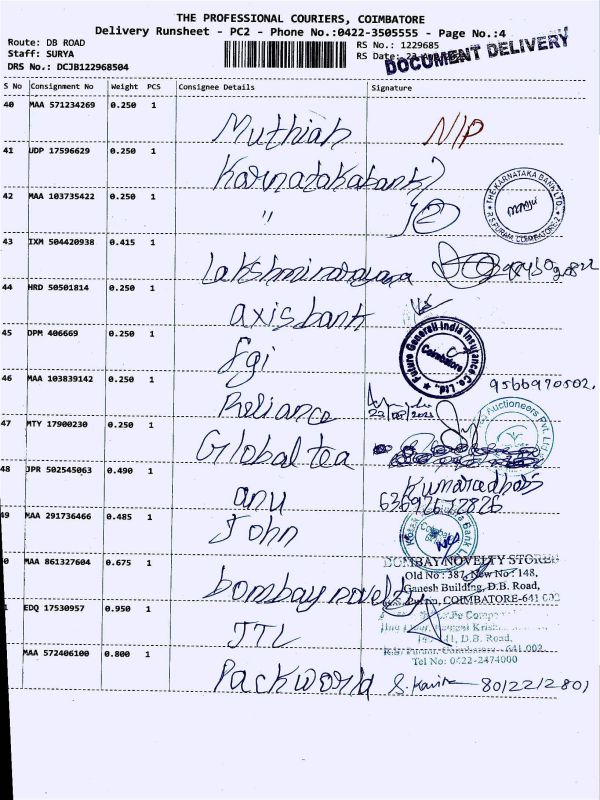 THE PROFESSIONAL COURIERS, COIMBATORE
Delivery Runsheet - PC2 - Phone No.:0422-3505555 - Page No.:4
Route: DB ROAD
Staff: SURYA
DRS No.: DCJB122968504
RS No.: 1229685
RS Date:
DOCUMENT DELIVERY
S No Consignment No Weight PCS Consignee Details Signature
40 MAA 571234269 0.250 1
Muthiah N/P
41 UDP 17596629 0.250 1
Karnatakabank
42 MAA 103735422 0.250 1
"
THE KARNATAKA BANK LTD.,
R.S. PURAM, COIMBATORE-2
43 IXM 504420938 0.415 1
Lakshminarayana
44 HRD 50501814 0.250 1
axisbank
45 DPM 406669 0.250 1
Fgi
Future Generali India Insurance Co. Ltd.,
Coimbatore
46 MAA 103839142 0.250 1
9566970502.
Reliance
47 MTY 17900230 0.250 1
Auctioneers Pvt. Ltd.
Global tea
48 JPR 502545063 0.490 1
anu
49 MAA 291736466 0.485 1
John
0 MAA 861327604 0.675 1
bombay novelty
BOMBAY NOVELTY STORES
Old No : 387, New No : 148,
Ganesh Building, D.B. Road,
COIMBATORE-641 002
1 EDQ 17530957 0.950 1
JTL
D.B. Road,
Tel No: 0422-2474000
MAA 572406100 0.800 1
Packworld 8012212801